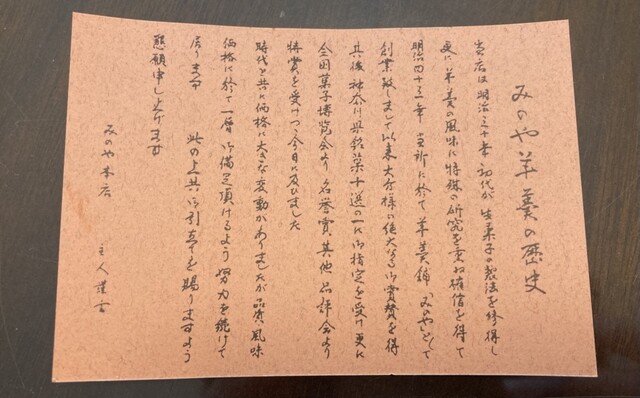 みのや羊羹の歴史
当店は明治三十年初代が生菓子の製法を修得し
更に羊羹の風味に特殊の研究を重ね確信を得て
明治四十三年当所に於て羊羹舗「みのや」として
創業致しまして以来大方様の絶大なる御賞賛を得
其後神奈川県銘菓十選の一に御指定を受け更に
全国菓子博覧会より名誉賞其他品評会より
特賞を受けつゝ今日に及びました
時代と共に価格に大きな変動がありましたが品質風味
価格に於て一層御満足頂けるよう努力を続けて
居ります 此の上共御引立てを賜りますよう
懇願申し上げます
みのや本店 主人謹言